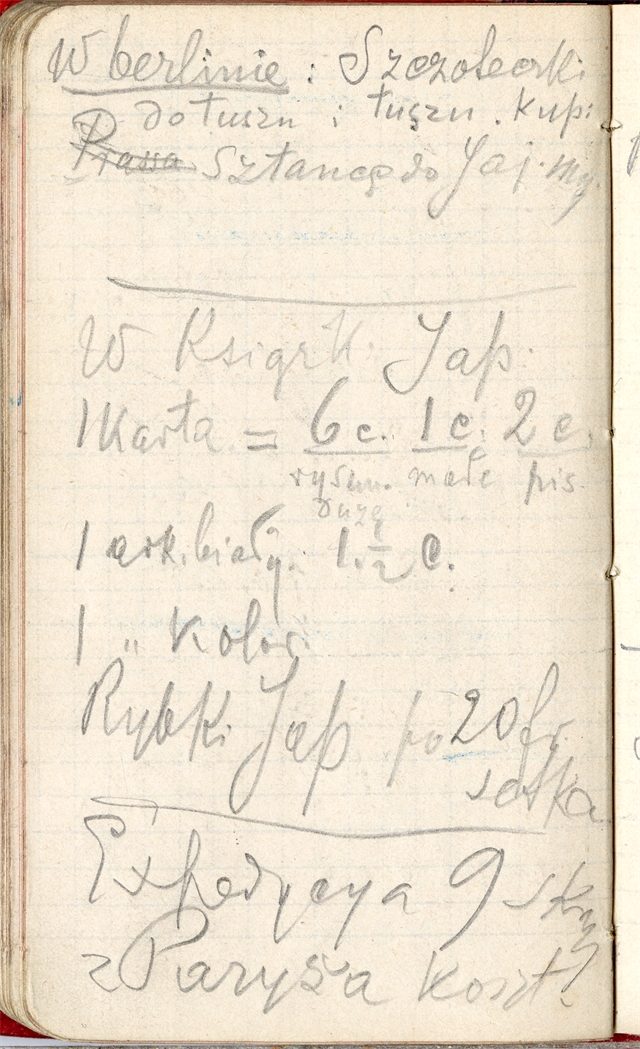 W berlinie : Szczoteczki
do tuszu i tuszu. kupi
Prasa Sztancę do Jaj. my
W Książk. Jap.
1 Karta = 6 c. 1 c. 2 c.
rysun. małe pis.
dużą
1 ark. biały. 1. 1/2 c.
1 " Kolor.
Rybki Jap po 20 fr
setka
Expedycya 9 skrzy
z Paryża koszt.